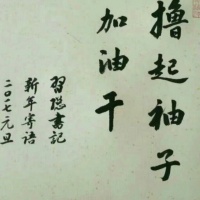 撸起袖子
加油干
習総書記
新年寄语
二〇一七元旦